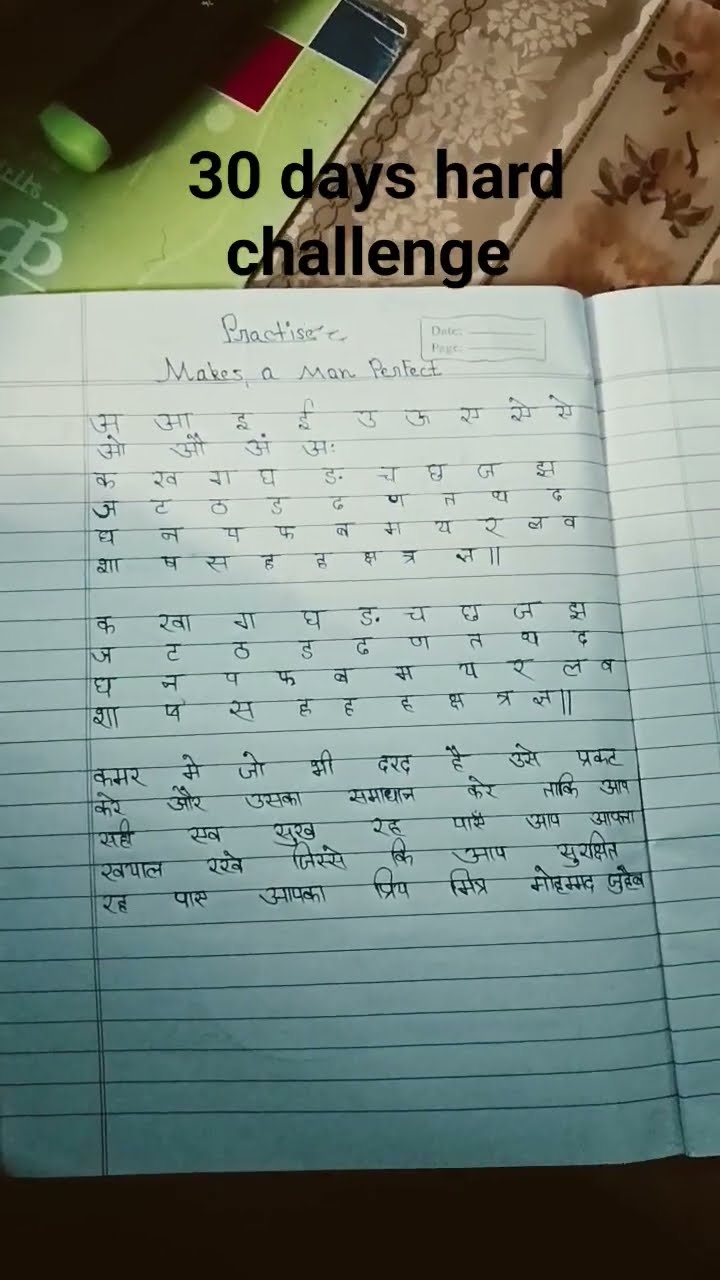 30 days hard
challenge
Practise
Date:
Page:
Makes a Man Perfect
अ आ इ ई उ ऊ ए ऐ ऐ
ओ औ अं अः
क ख ग घ ड. च छ ज झ
ञ ट ठ ड ढ ण त थ द
ध न प फ ब म य र ल व
शा ष स ह ह क्ष त्र ज्ञ ||
क खा ग घ ड. च छ ज झ
ञ ट ठ ड ढ ण त थ द
घ न प फ ब म य र ल व
शा ष स ह ह ह क्ष त्र ज्ञ ||
कमर मे जो भी दरद है उसे प्रकट
करे और उसका समाधान करे ताकि आप
सही एव सुख रह पाएँ आप आपना
खयाल रखे जिस्से कि आप सुरक्षित
रह पाए आपका प्रिय मित्र मोहम्मद जुहैब